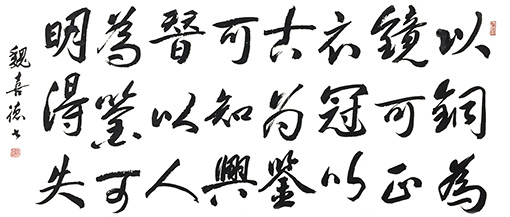 以銅為
鏡可正
衣冠以
古为鑒
可知興
替以人
為鑒可
明得失
魏喜德书